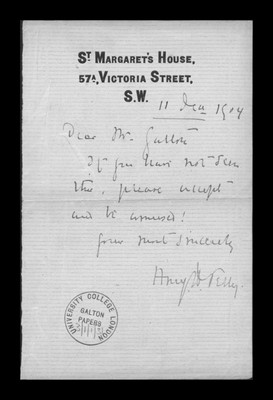 St MARGARET'S HOUSE,
57A, VICTORIA STREET,
S.W.
11 Dec 1904
Dear Mr. Galton
If you have not seen
this, please accept
and be amused!
Yours most sincerely
UNIVERSITY COLLEGE LONDON
GALTON
PAPERS